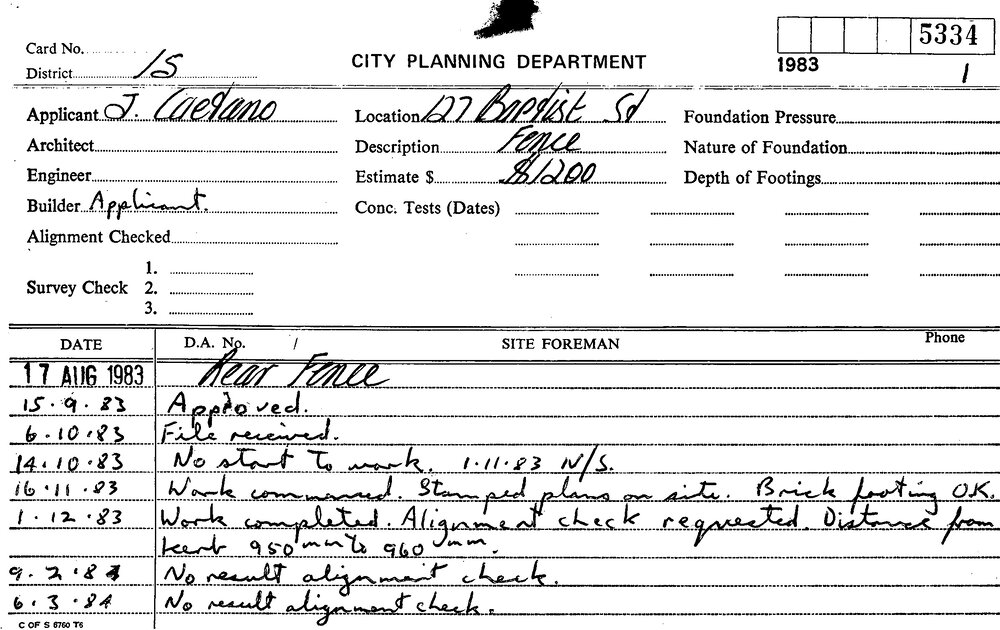 5334
Card No.
District 15
CITY PLANNING DEPARTMENT
1983
1
Applicant J. Caetano
Location 127 Baptist St
Foundation Pressure
Architect
Description Fence
Nature of Foundation
Engineer
Estimate $ $1200
Depth of Footings
Builder Applicant.
Conc. Tests (Dates)
Alignment Checked
1.
Survey Check 2.
3.
DATE D.A. No. / SITE FOREMAN Phone
17 AUG 1983 Rear Fence
15.9.83 Approved.
6.10.83 File received.
14.10.83 No start to work. 1.11.83 N/S.
16.11.83 Work commenced. Stamped plans on site. Brick footing O.K.
1.12.83 Work completed. Alignment check requested. Distance from
kerb 950mm to 960mm.
9.2.84 No result alignment check.
6.3.84 No result alignment check.
C OF S 6760 T6